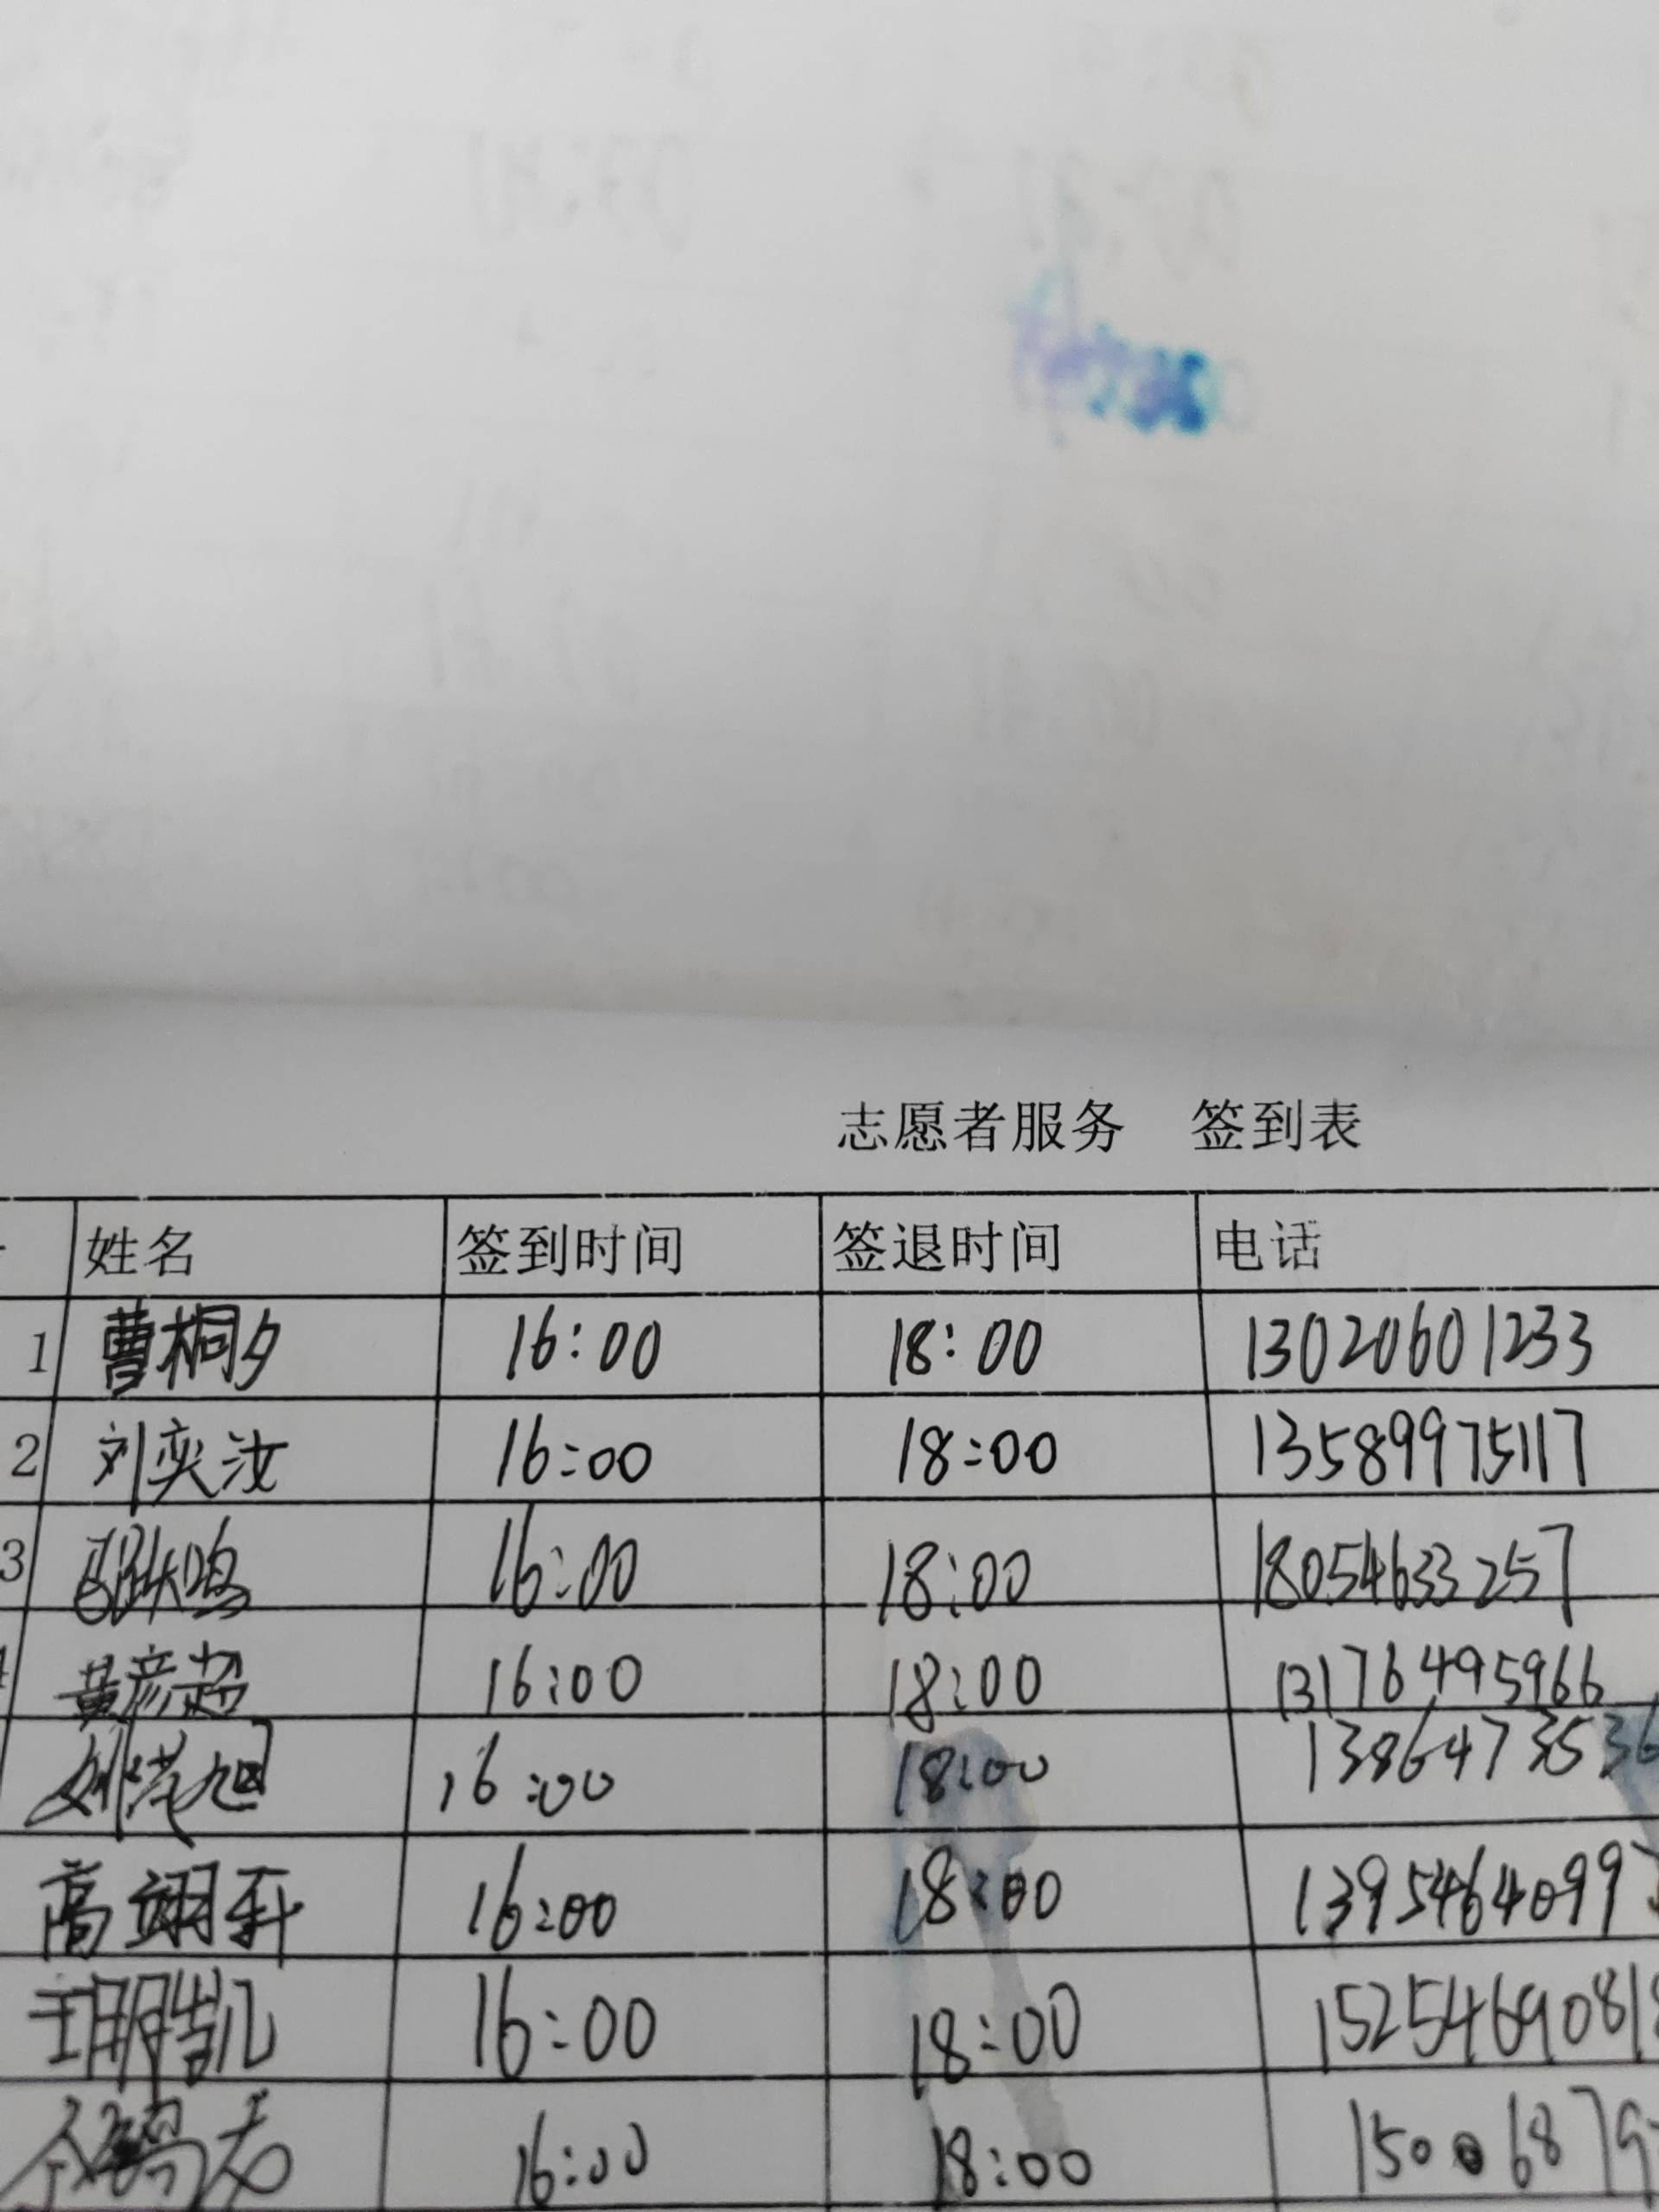 志愿者服务 签到表
姓名 签到时间 签退时间 电话
1 曹桐夕 16:00 18:00 13020601233
2 刘奕汝 16:00 18:00 13589975117
3 16:00 18:00 18054633257
黄彦超 16:00 18:00 13176495966
姚 旭 16:00 18:00
高翊轩 16:00 18:00 1395464099
王明凯 16:00 18:00 1525469081
16:00 18:00